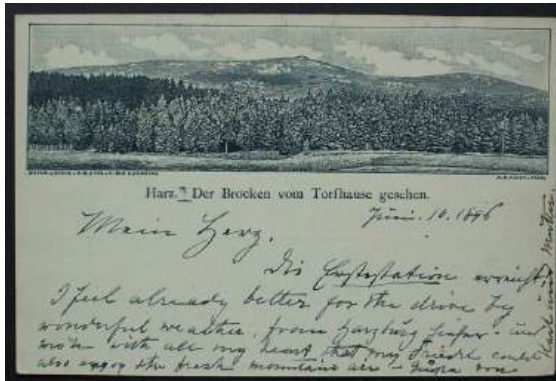 Harz. Der Brocken vom Torfhause gesehen.
Juni. 10. 1896
Mein Herz.
Die Erstestation erreicht,
I feel already better for the drive by
wonderful weather from Harzburg hieher - und
wish with all my heart, that my Friedel could
also enjoy the fresh mountain air - Grüsse von